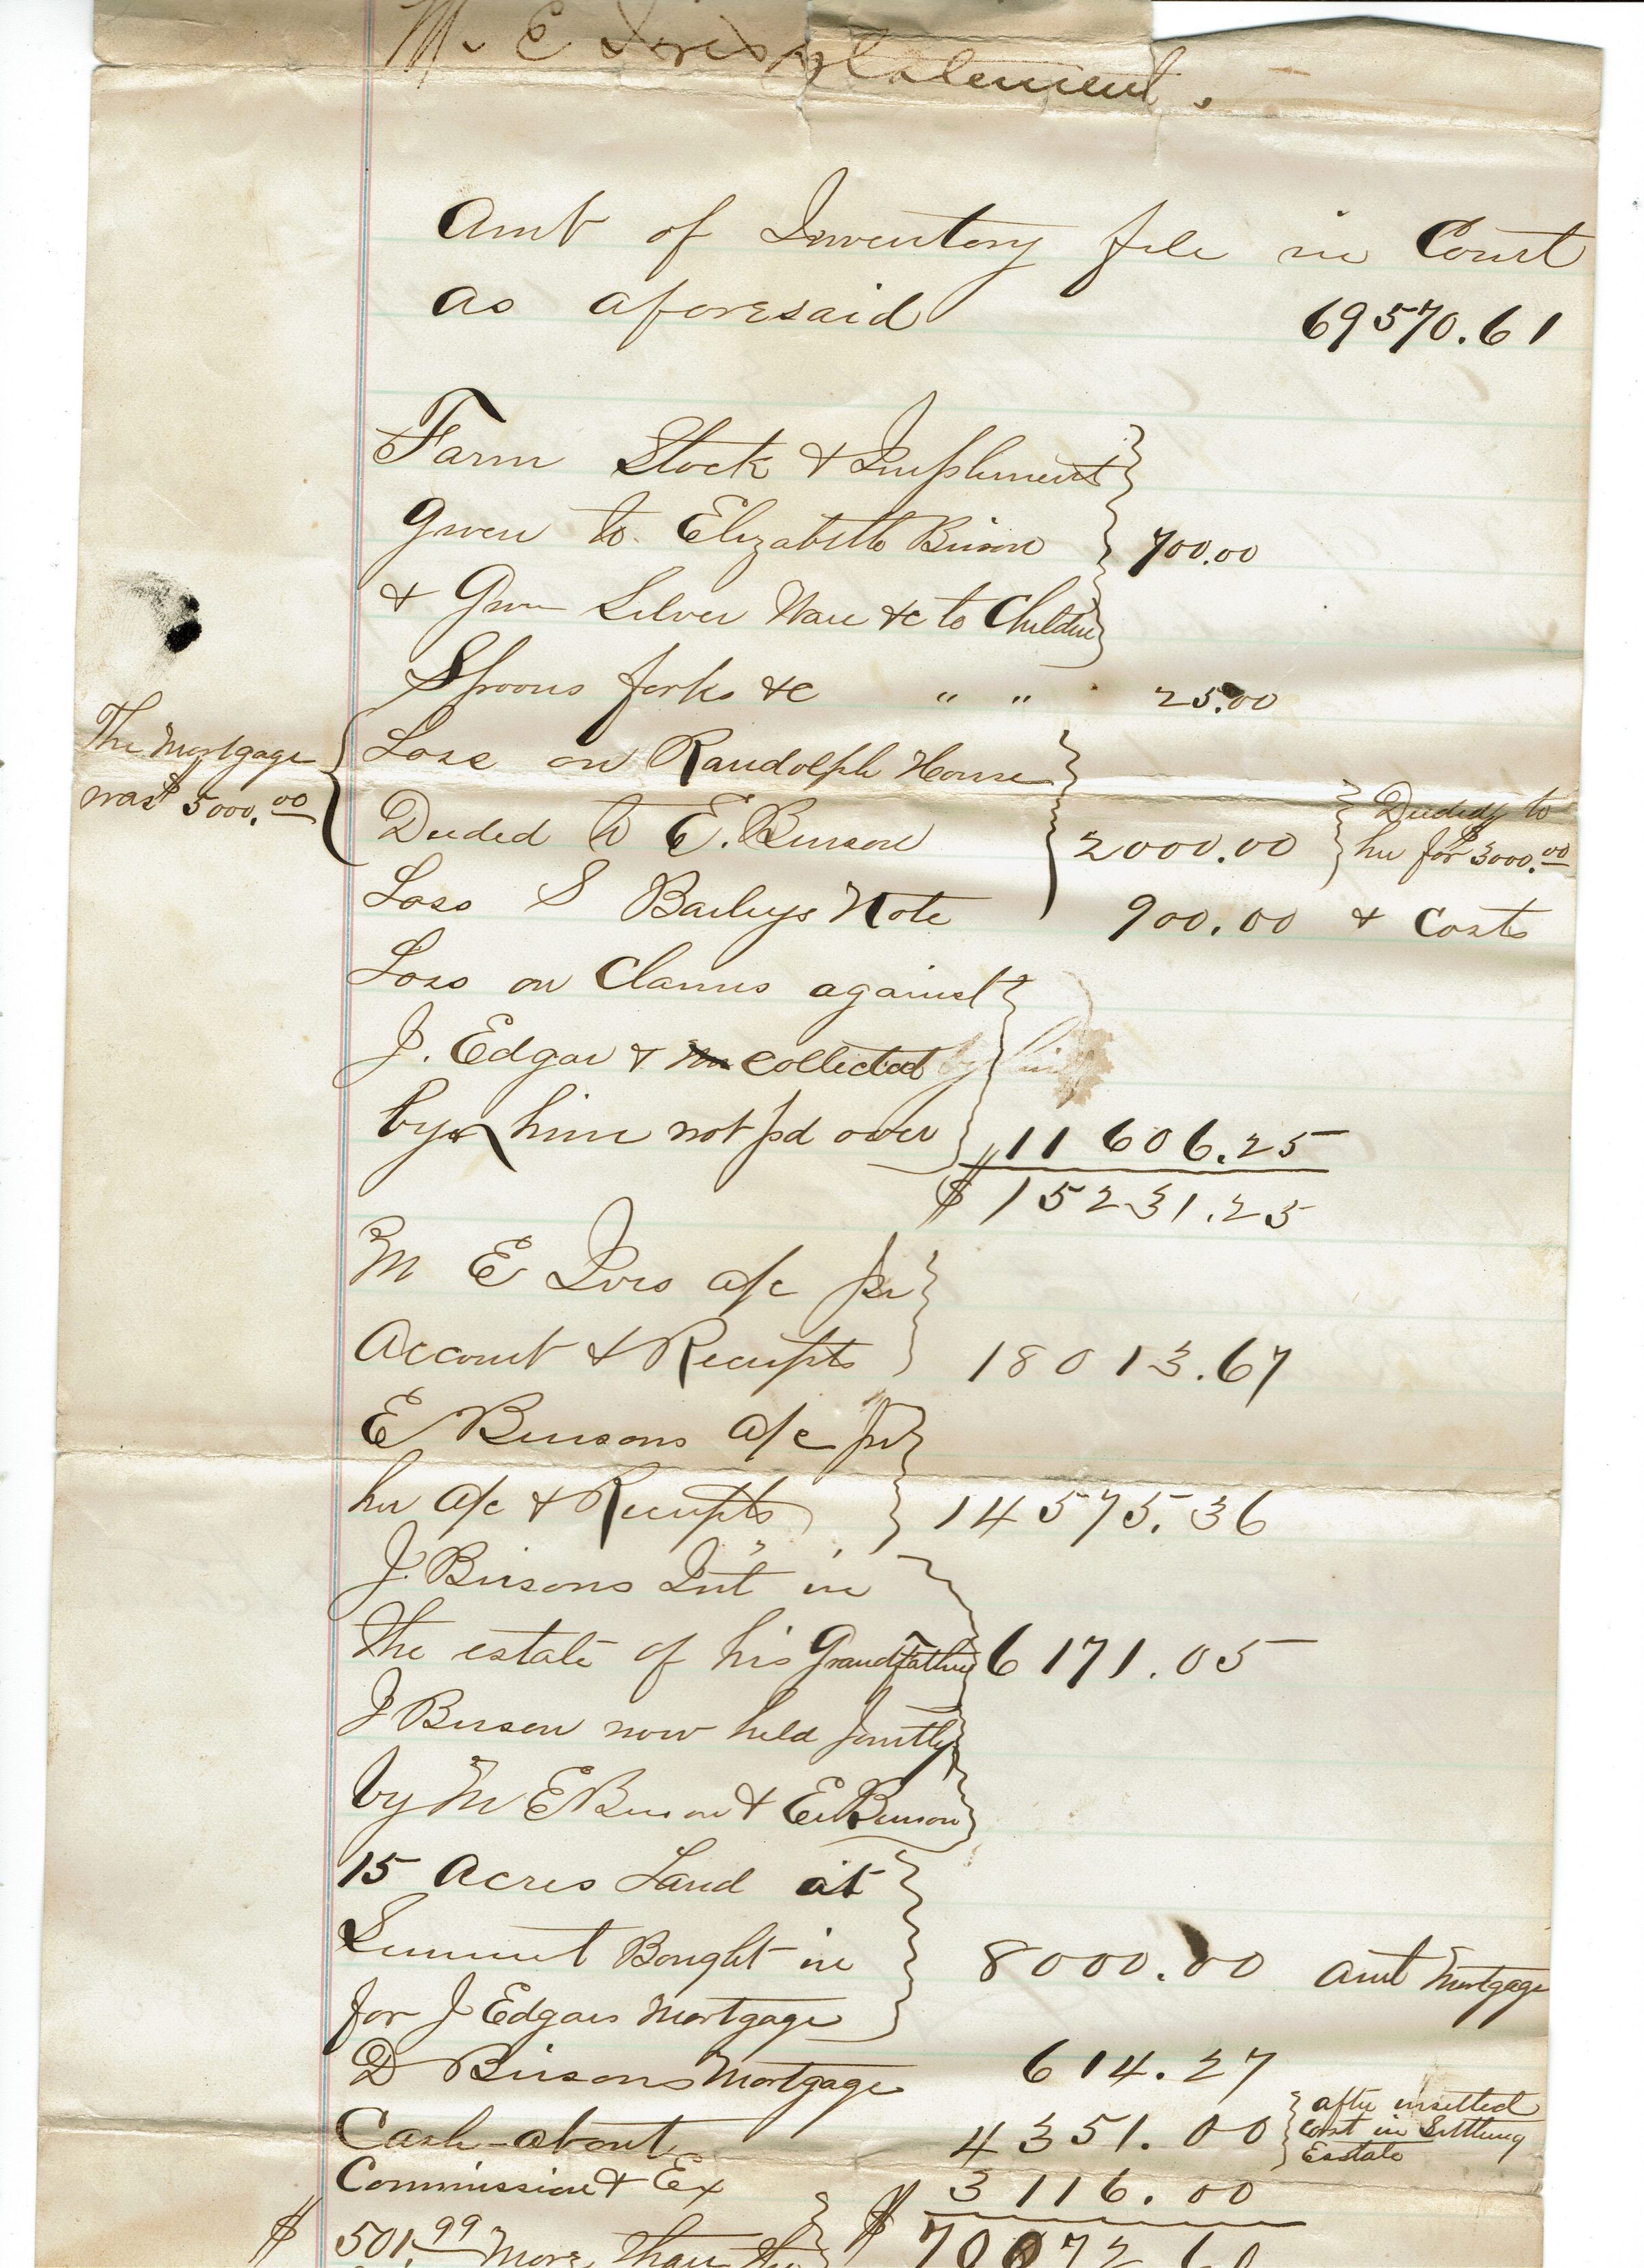 M. E Ives statement.
Amt of Inventory file in Court
as aforesaid 69570.61
Farm Stock & Implement
Given to Elizabeth Binson 700.00
& Given Silver Ware &c to Children
Spoons forks &c " " 25.00
The Mortgage
was $5000.00
Loss on Randolph House
Deeded to E. Binson 2000.00
Deeded to
her for $3000.00
Loss S Baileys Note 900.00 & Costs
Loss on Claims against
J. Edgar & collected by him
by him not pd over $11606.25
$15231.25
M E Ives a/c pr
Account & Receipts 18013.67
E Binsons a/c pr
her a/c & Receipts 14575.36
J. Binsons Int in
the estate of his Grandfather 6171.05
J Binson now held Jointly
by M E Binson & E Binson
15 Acres Land at
Summit Bought in 8000.00 amt Mortgage
for J Edgars Mortgage
D Binsons Mortgage 614.27
Cash about 4351.00
after
cost in Settling
Esstate
Commission & Ex $3116.00
$501.99 More than the $70072.60